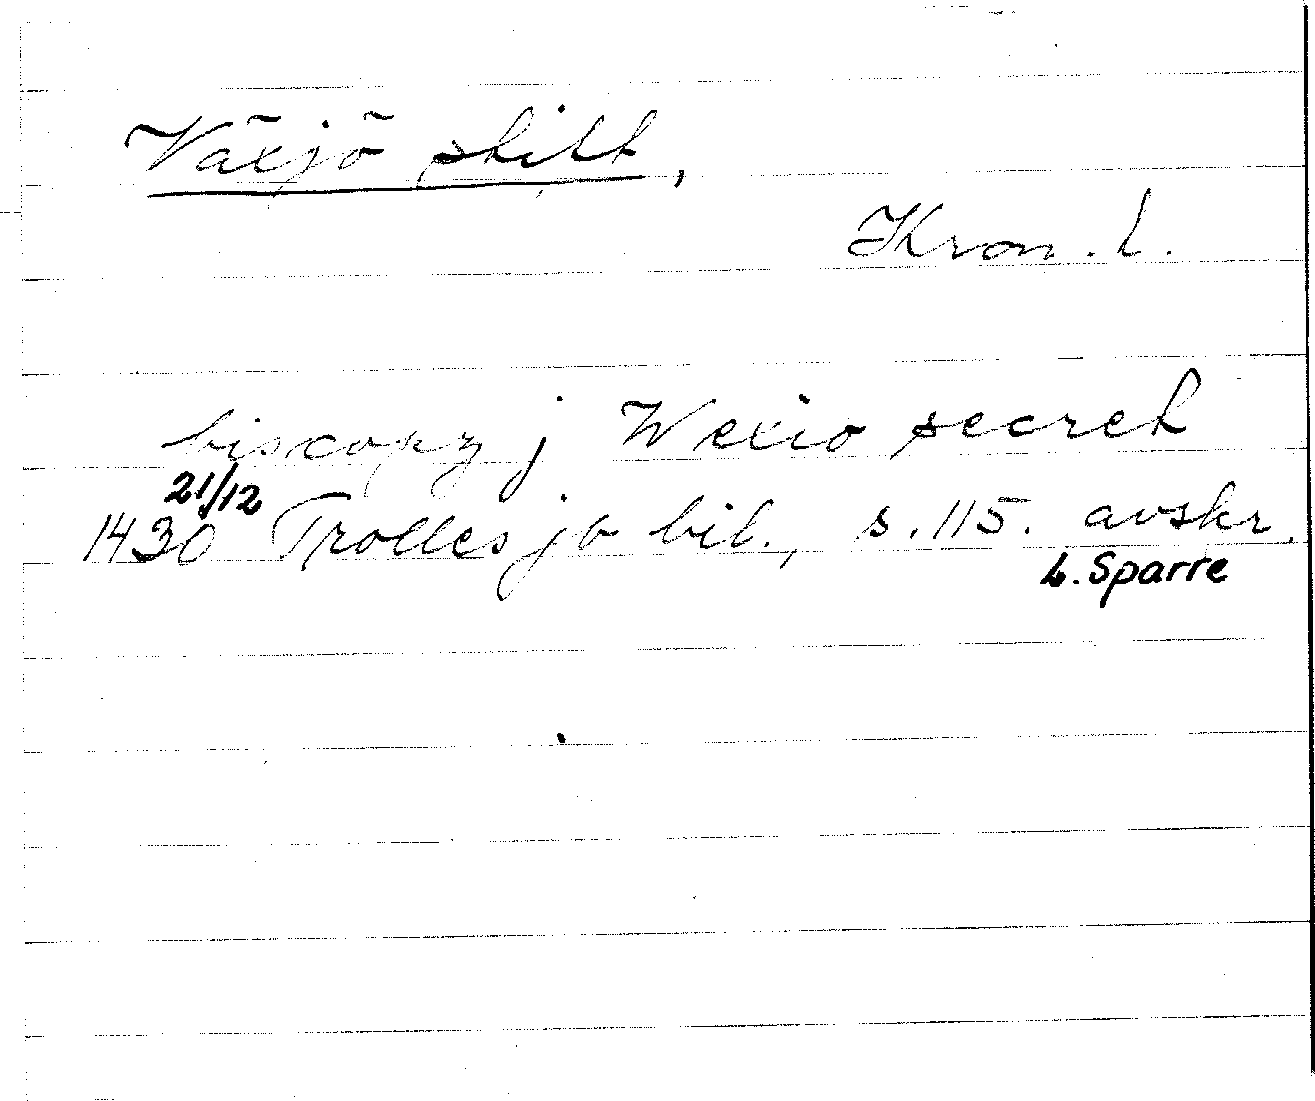 Växjö stift,
Kron. l.
biscopz j Wexio secret
21/12
1430 Trolles jb bil., s. 115. avskr.
L. Sparre